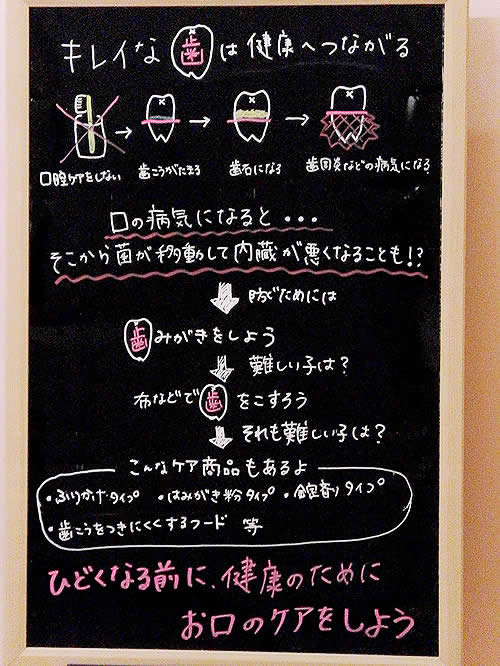 キレイな歯は健康へつながる
口腔ケアをしない → 歯こうがたまる → 歯石になる → 歯周炎などの病気になる
口の病気になると・・・
そこから菌が移動して内蔵が悪くなることも!?
防ぐためには
歯みがきをしよう
難しい子は?
布などで歯をこすろう
それも難しい子は?
こんなケア商品もあるよ
・ふりかけタイプ ・はみがき粉タイプ ・タイプ
・歯こうをつきにくくするフード 等
ひどくなる前に、健康のために
お口のケアをしよう